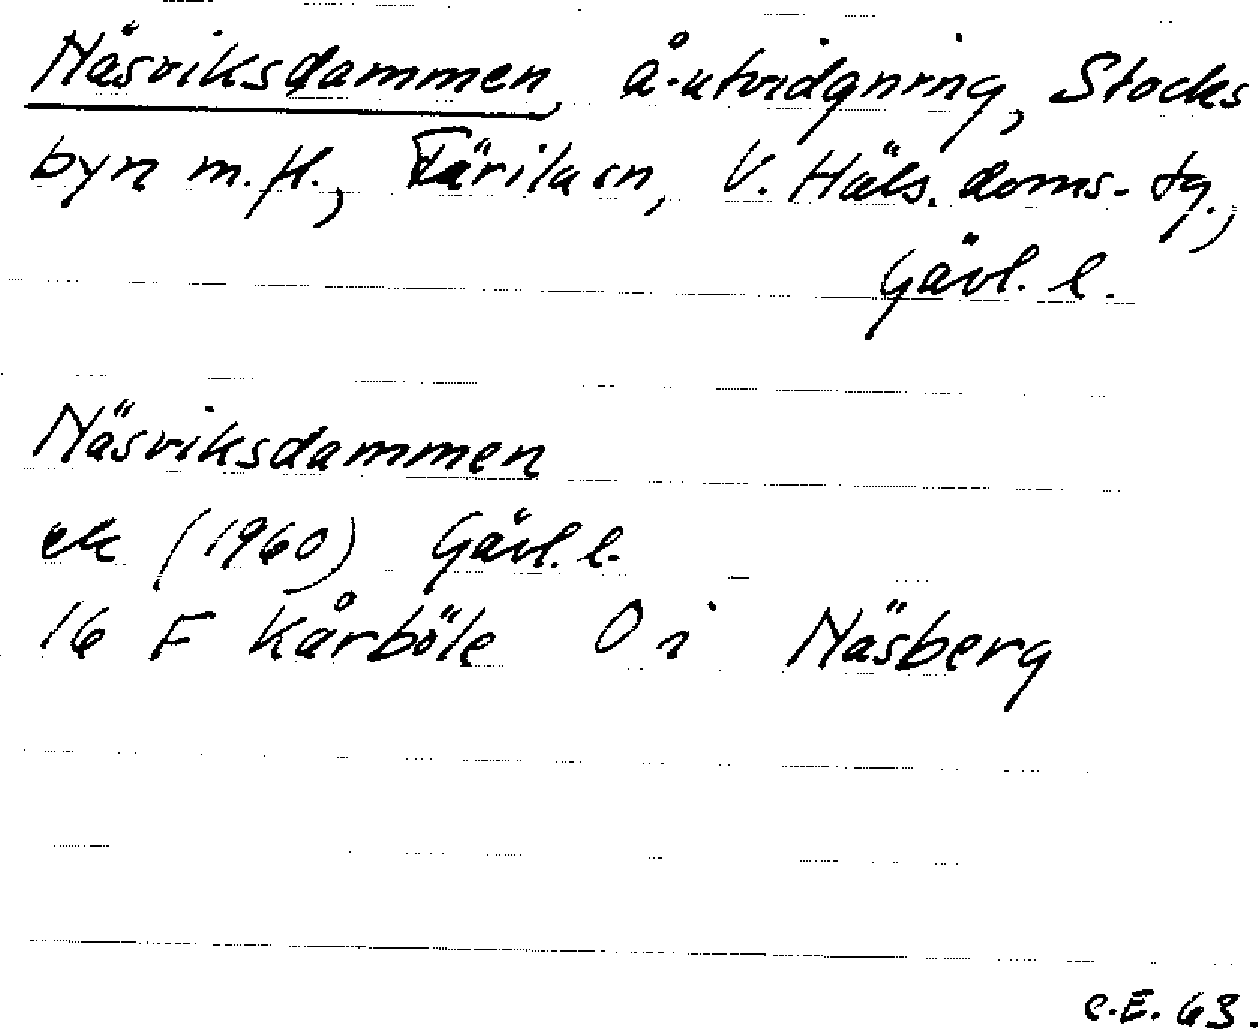 Näsviksdammen, å-utvidgning, Stocks
byn m.fl., Färila sn, V. Häls. doms.-tg.,
Gävl. l.
Näsviksdammen
ek (1960) Gävl. l.
16 F Kårböle O i Näsberg
C.E. 63.